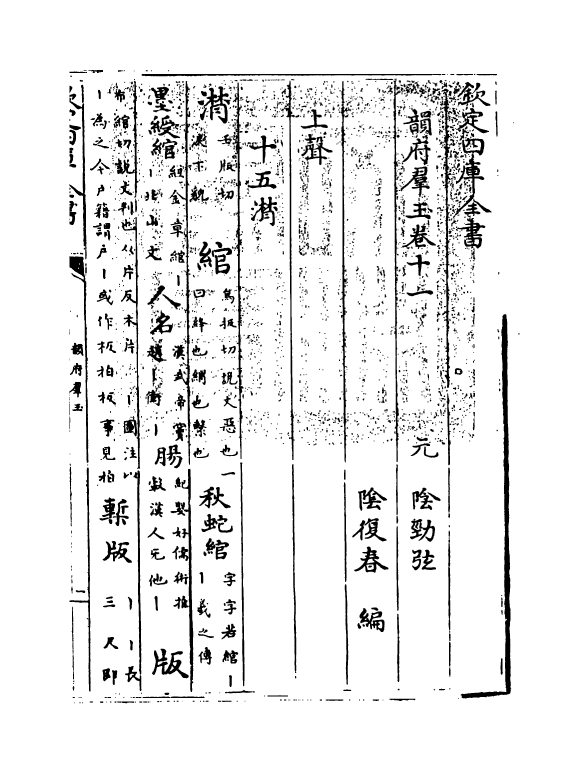 欽定四庫全書
韻府羣玉卷十一
元 陰勁弦
陰復春 編
上聲
十五潸
潸 版切
綰 烏板切說文惡也一
曰 也綰也繫也
秋蛇綰 字字若綰
丨羲之傳
墨綬綰 紐金章綰丨
丨北山文
人名 漢武帝竇
趙丨衛丨
腸
版
布綰切說文判也从片反木片 丨圖注以
丨為之今户籍謂户丨或作板栢板事見栢
槧版 丨丨長
三尺即
韻府羣玉